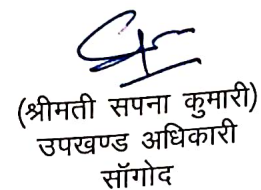 (श्रीमती सपना कुमारी)
उपखण्ड अधिकारी
सॉगोद